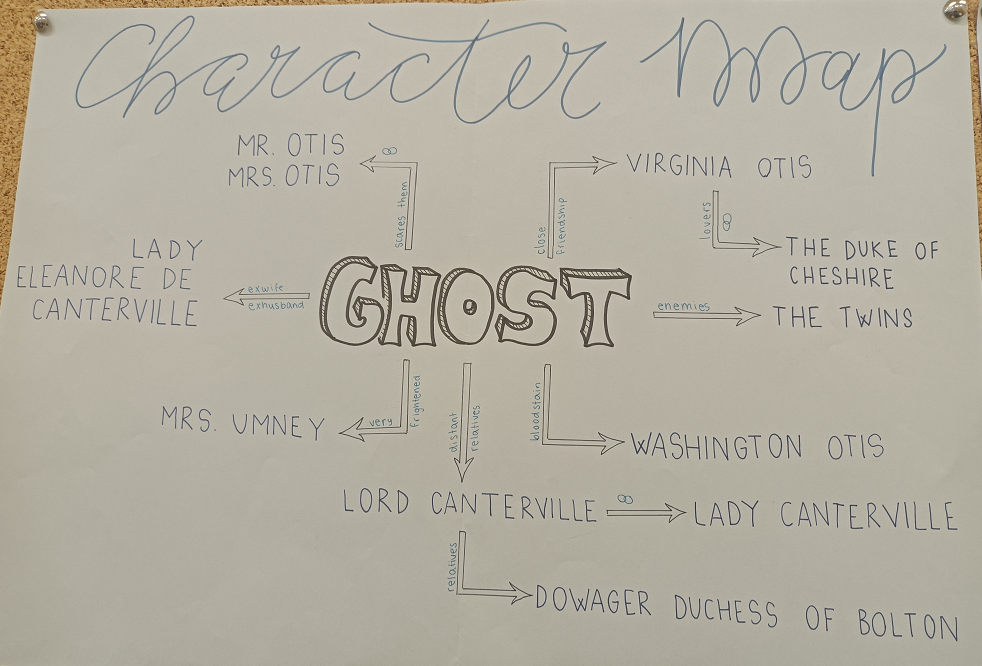 Character Map
MR. OTIS
MRS. OTIS
scares them
close
friendship
VIRGINIA OTIS
lovers
THE DUKE OF
CHESHIRE
LADY
ELEANORE DE
CANTERVILLE
exwife
exhusband
GHOST
enemies
THE TWINS
MRS. UMNEY
very
frightened
distant
relatives
bloodstain
WASHINGTON OTIS
LORD CANTERVILLE
LADY CANTERVILLE
relatives
DOWAGER DUCHESS OF BOLTON